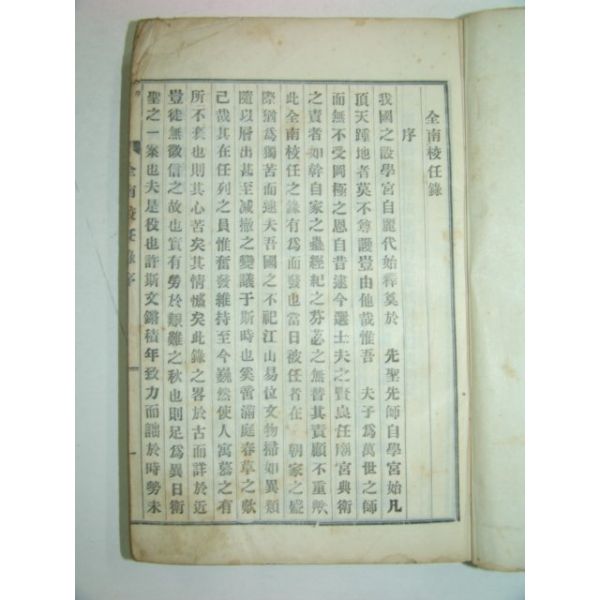 全南校任錄
序
我國之設學宮自麗代始釋奠於 先聖先師自學宮始凡
頂天踵地者莫不尊護豈由他哉惟吾 夫子爲萬世之師
而無不受罔極之恩自昔逮今選士夫之賢良任廟宮典衛
之責者如幹自家之蠱經紀之芬苾之無替其責顧不重歟
此全南校任之錄有爲而發也當日被任者在 朝家之盛
際猶爲獨苦而逮夫吾國之不祀江山易位文物掃如異類
隨以層出甚至減撤之變議于斯時也奚啻滿庭春草之歎
己哉其在任列之員惟奮發維持至今巍然使人寓慕之有
所不衰也則其心苦矣其情慽矣此錄之畧於古而詳於近
豈徒無徵信之故也實有勞於艱難之秋也則足爲異日衛
聖之一案也夫是役也許斯文鏞積年致力而詘於時勞未
全南校任錄序
一